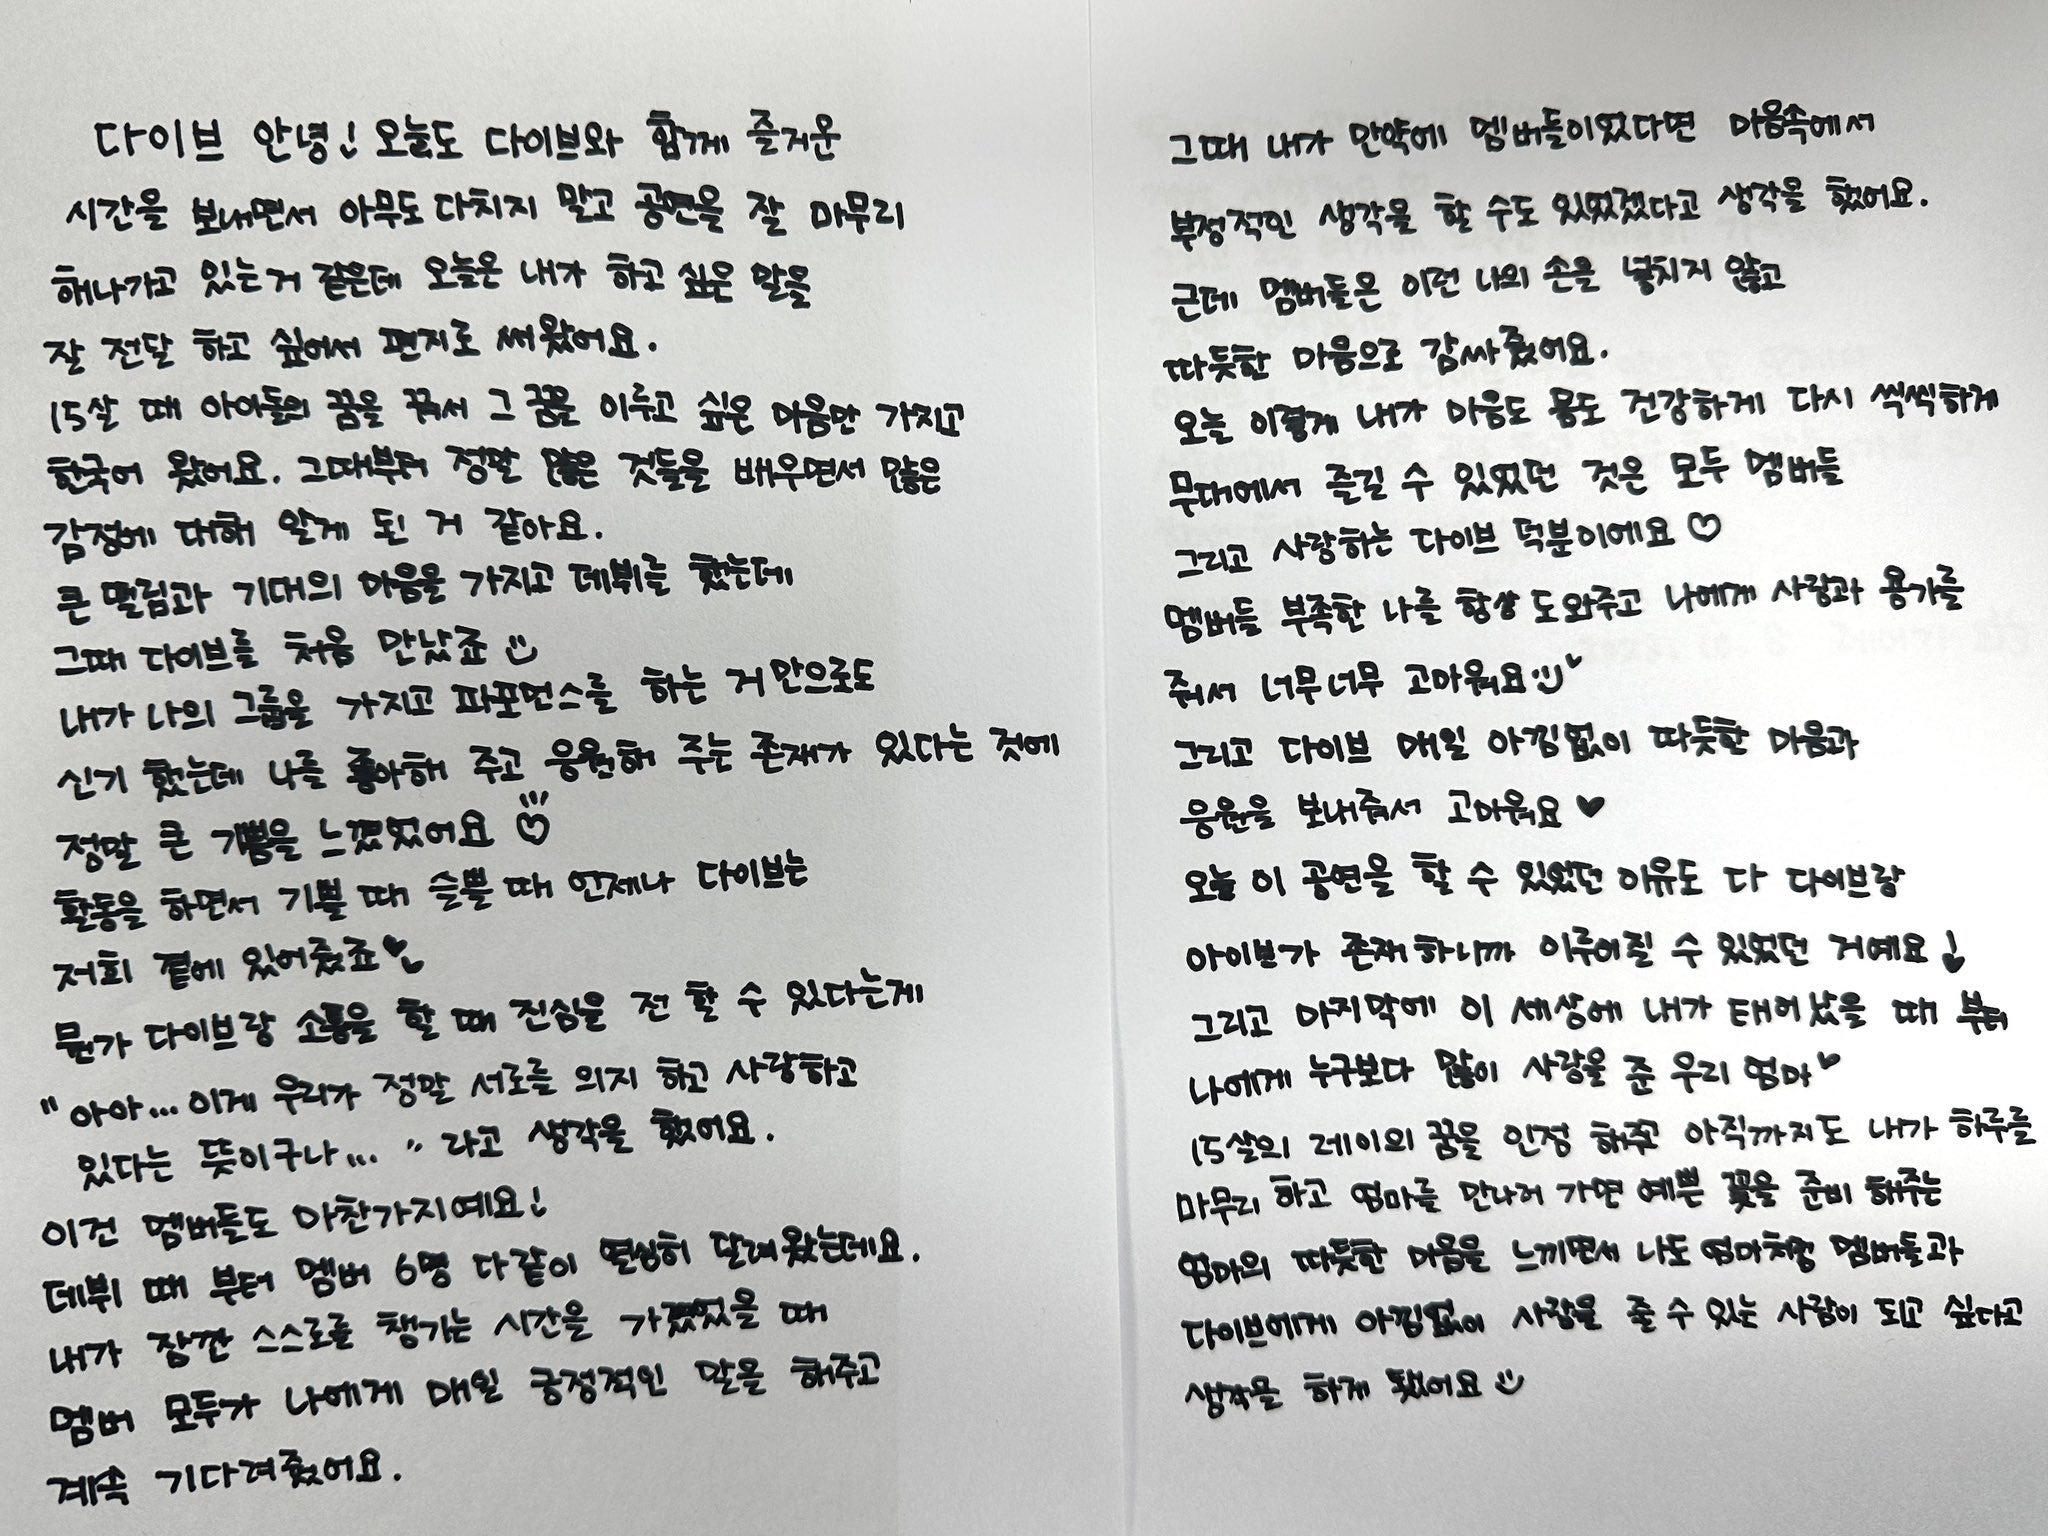 다이브 안녕! 오늘도 다이브와 함께 즐거운
시간을 보내면서 아무도 다치지 말고 공연을 잘 마무리
해나가고 있는거 같은데 오늘은 내가 하고 싶은 말을
잘 전달 하고 싶어서 편지로 써왔어요.
15살 때 아이돌의 꿈을 꿔서 그 꿈을 이루고 싶은 마음만 가지고
한국어 왔어요. 그때부터 정말 많은 것들을 배우면서 많은
감정에 대해 알게 된 거 같아요.
큰 떨림과 기대의 마음을 가지고 데뷔를 했는데
그때 다이브를 처음 만났죠
내가 나의 그룹을 가지고 퍼포먼스를 하는 거 만으로도
신기 했는데 나를 좋아해 주고 응원해 주는 존재가 있다는 것에
정말 큰 기쁨을 느꼈었어요 ♡
활동을 하면서 기쁠 때 슬플 때 언제나 다이브는
저희 곁에 있어줬죠♥
뭔가 다이브랑 소통을 할 때 진심을 전 할 수 있다는게
"아아... 이게 우리가 정말 서로를 의지 하고 사랑하고
있다는 뜻이구나..." 라고 생각을 했어요.
이건 멤버들도 마찬가지예요!
데뷔 때 부터 멤버 6명 다같이 열심히 달려왔는데요.
내가 잠깐 스스로를 챙기는 시간을 가졌었을 때
멤버 모두가 나에게 매일 긍정적인 말을 해주고
계속 기다려줬어요.
그때 내가 만약에 멤버들이었다면 마음속에서
부정적인 생각을 할 수도 있었겠다고 생각을 했어요.
근데 멤버들은 이런 나의 손을 놓치지 않고
따듯한 마음으로 감싸줬어요.
오늘 이렇게 내가 마음도 몸도 건강하게 다시 씩씩하게
무대에서 즐길 수 있었던 것은 모두 멤버들
그리고 사랑하는 다이브 덕분이에요♡
멤버들 부족한 나를 항상 도와주고 나에게 사랑과 용기를
줘서 너무너무 고마워요
그리고 다이브 매일 아낌없이 따듯한 마음과
응원을 보내줘서 고마워요♥
오늘 이 공연을 할 수 있었던 이유도 다 다이브랑
아이브가 존재하니까 이루어질 수 있었던 거예요!
그리고 마지막에 이 세상에 내가 태어났을 때 부터
나에게 누구보다 많이 사랑을 준 우리 엄마♥
15살의 레이의 꿈을 인정 해주고 아직까지도 내가 하루를
마무리 하고 엄마를 만나러 가면 예쁜 꽃을 준비 해주는
엄마의 따듯한 마음을 느끼면서 나도 엄마처럼 멤버들과
다이브에게 아낌없이 사랑을 줄 수 있는 사람이 되고 싶다고
생각을 하게 됐어요